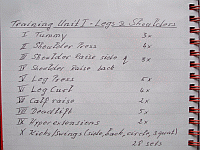 Training Unit I - Legs & Shoulders
I Tummy 3x
II Shoulder Press 4x
III Shoulder Raise side &
IV Shoulder Raise back 3x
V Leg Press 5x
VI Leg Curl 4x
VII Calf raise 2x
VIII Deadlift 5x
IX Hyperextensions 2x
X Kicks/Swings (side, back, circle, squat)
28 sets